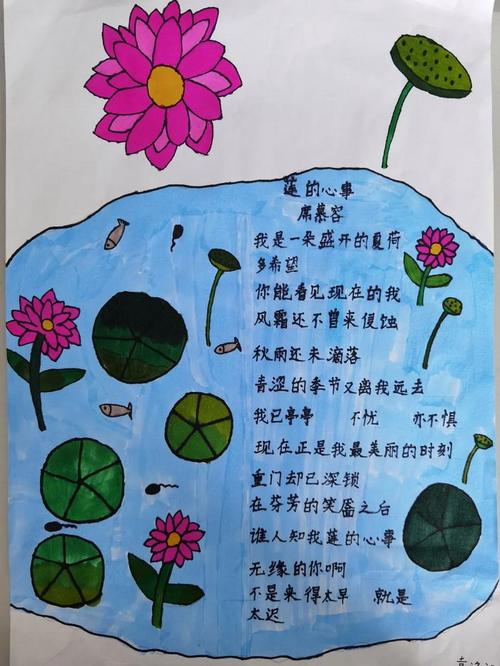 莲的心事
席慕容
我是一朵盛开的夏荷
多希望
你能看见现在的我
风霜还不曾来侵蚀
秋雨还未滴落
青涩的季节又离我远去
我已亭亭 不忧 亦不惧
现在正是我最美丽的时刻
重门却已深锁
在芬芳的笑靥之后
谁人知我莲的心事
无缘的你啊
不是来得太早 就是
太迟